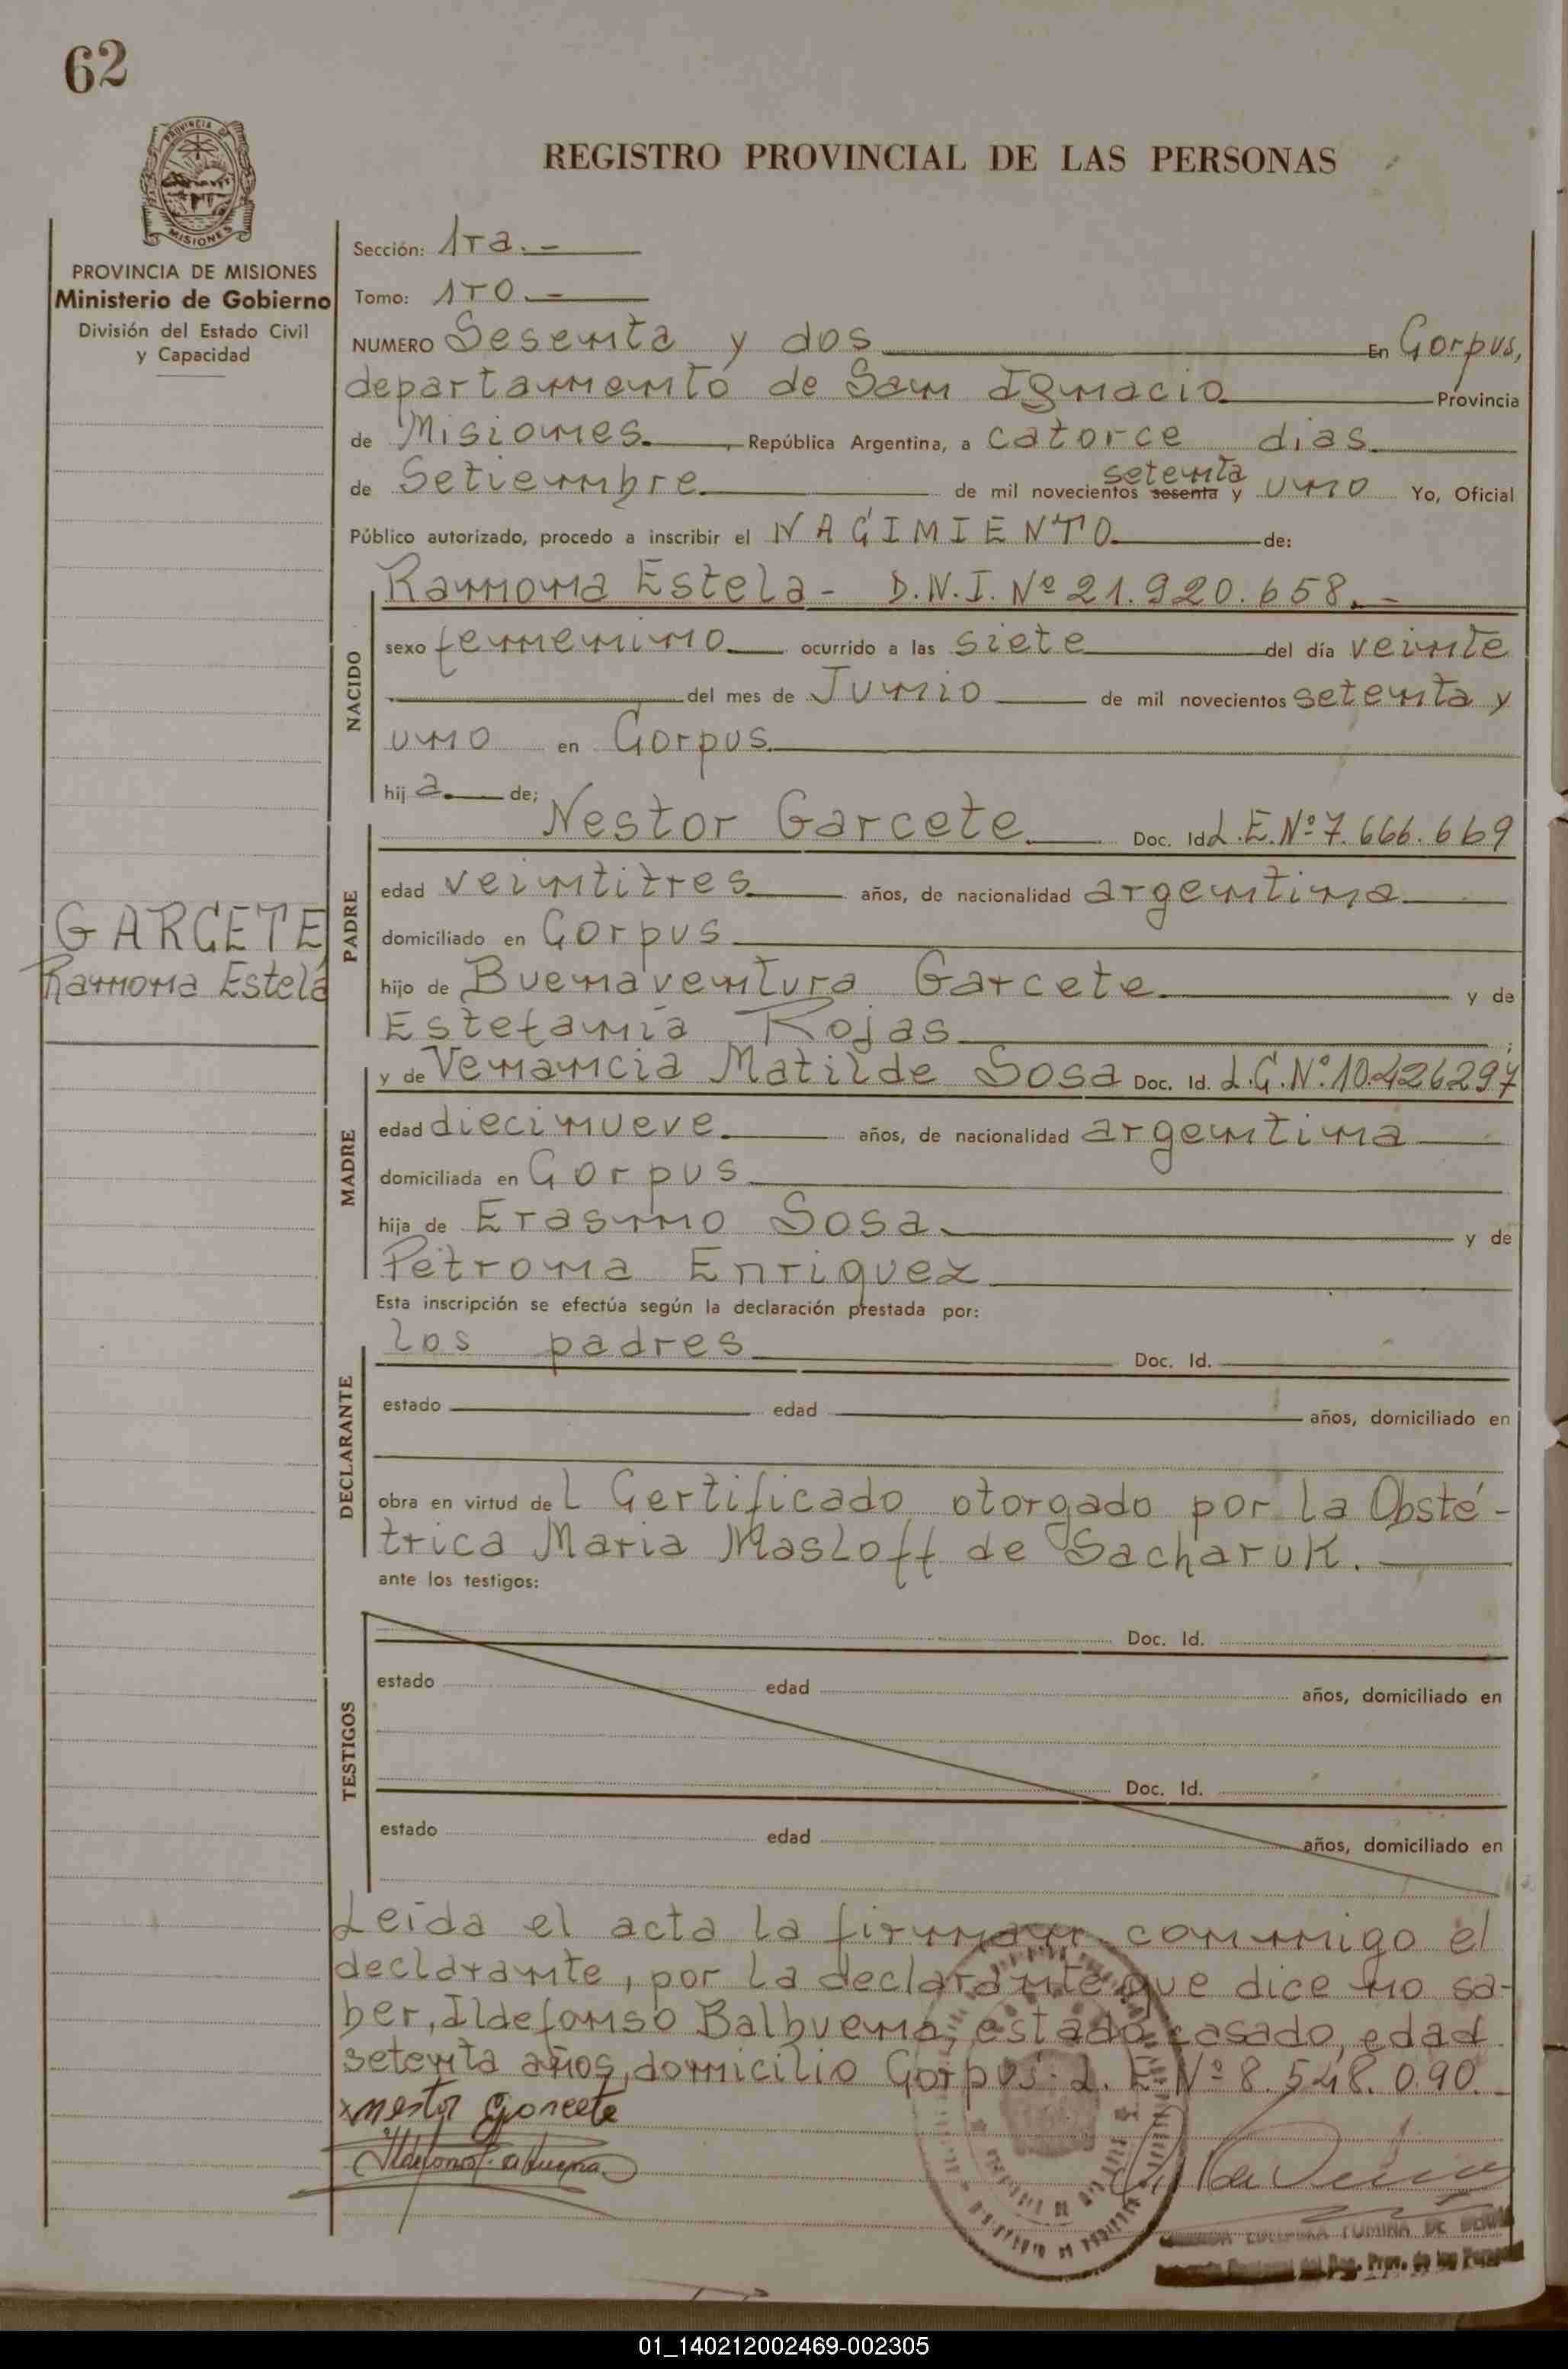 62
REGISTRO PROVINCIAL DE LAS PERSONAS
PROVINCIA DE MISIONES
PROVINCIA DE MISIONES
Ministerio de Gobierno
División del Estado Civil
y Capacidad
Sección: 1ra.-
Tomo: 1ro.-
NUMERO Sesenta y dos En Corpus,
departamento de San Ignacio Provincia
de Misiones. , República Argentina, a catorce dias
de Setiembre de mil novecientos sesenta setenta y uno Yo, Oficial
Público autorizado, procedo a inscribir el NACIMIENTO de:
NACIDO
Ramona Estela - D.N.I. Nº 21.920.658.-
sexo femenino ocurrido a las siete del día veinte
del mes de Junio de mil novecientos setenta y
uno en Corpus
hij a de;
PADRE
Nestor Garcete Doc. Id. L.E.Nº 7.666.669
edad veintitres años, de nacionalidad argentina
domiciliado en Corpus
hijo de Buenaventura Garcete y de
Estefanía Rojas ;
GARCETE
Ramona Estela
MADRE
y de Venancia Matilde Sosa Doc. Id. L.C.Nº.10.426297
edad diecinueve años, de nacionalidad argentina
domiciliada en Corpus
hija de Erasmo Sosa y de
Petrona Enriquez
Esta inscripción se efectúa según la declaración prestada por:
DECLARANTE
los padres Doc. Id.
estado edad años, domiciliado en
obra en virtud de l Certificado otorgado por la Obsté-
trica Maria Masloff de Sacharuk.
ante los testigos:
TESTIGOS
Doc. Id.
estado edad años, domiciliado en
Doc. Id.
estado edad años, domiciliado en
Leída el acta la firman conmigo el
declarante, por la declarante que dice no sa-
ber, Ildefonso Balbuena, estado casado, edad
setenta años, domicilio Corpus. L. E Nº 8.548.090.
x nestor garcete
Ildefonso Balbuena
Reg. Prov. de las Personas
01_140212002469-002305